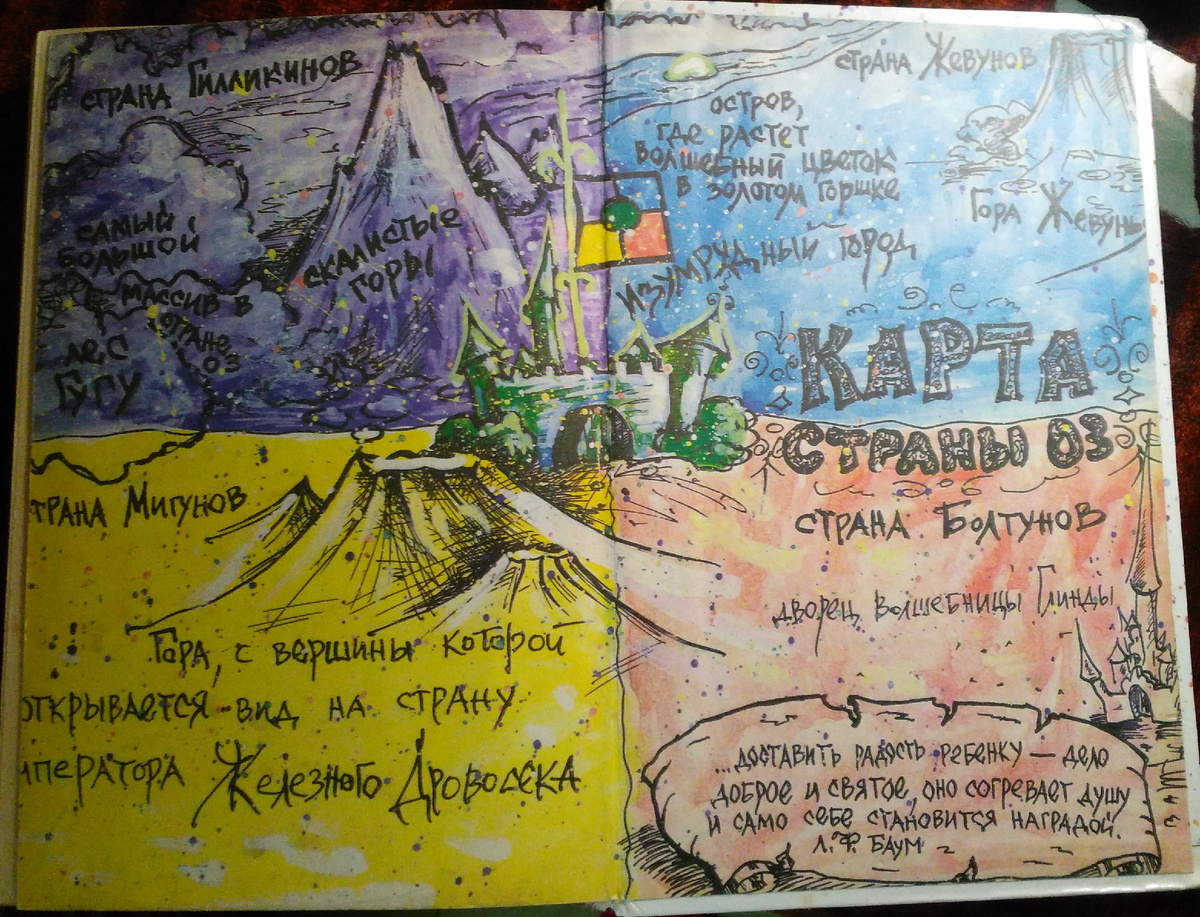 страна Гилликинов
самый
большой
массив в
стране
Оз
лес
Гугу
скалистые
горы
страна Жевунов
остров,
где растет
волшебный цветок
в золотом горшке
Гора Жевуны
Изумрудный город
КАРТА
СТРАНЫ ОЗ
трана Мигунов
Гора, с вершины которой
открывается вид на страну
ператора Железного Дровосека
страна Болтунов
дворец волшебницы Глинды
...доставить радость ребенку — дело
доброе и святое, оно согревает душу
и само себе становится наградой.
Л. Ф. Баум